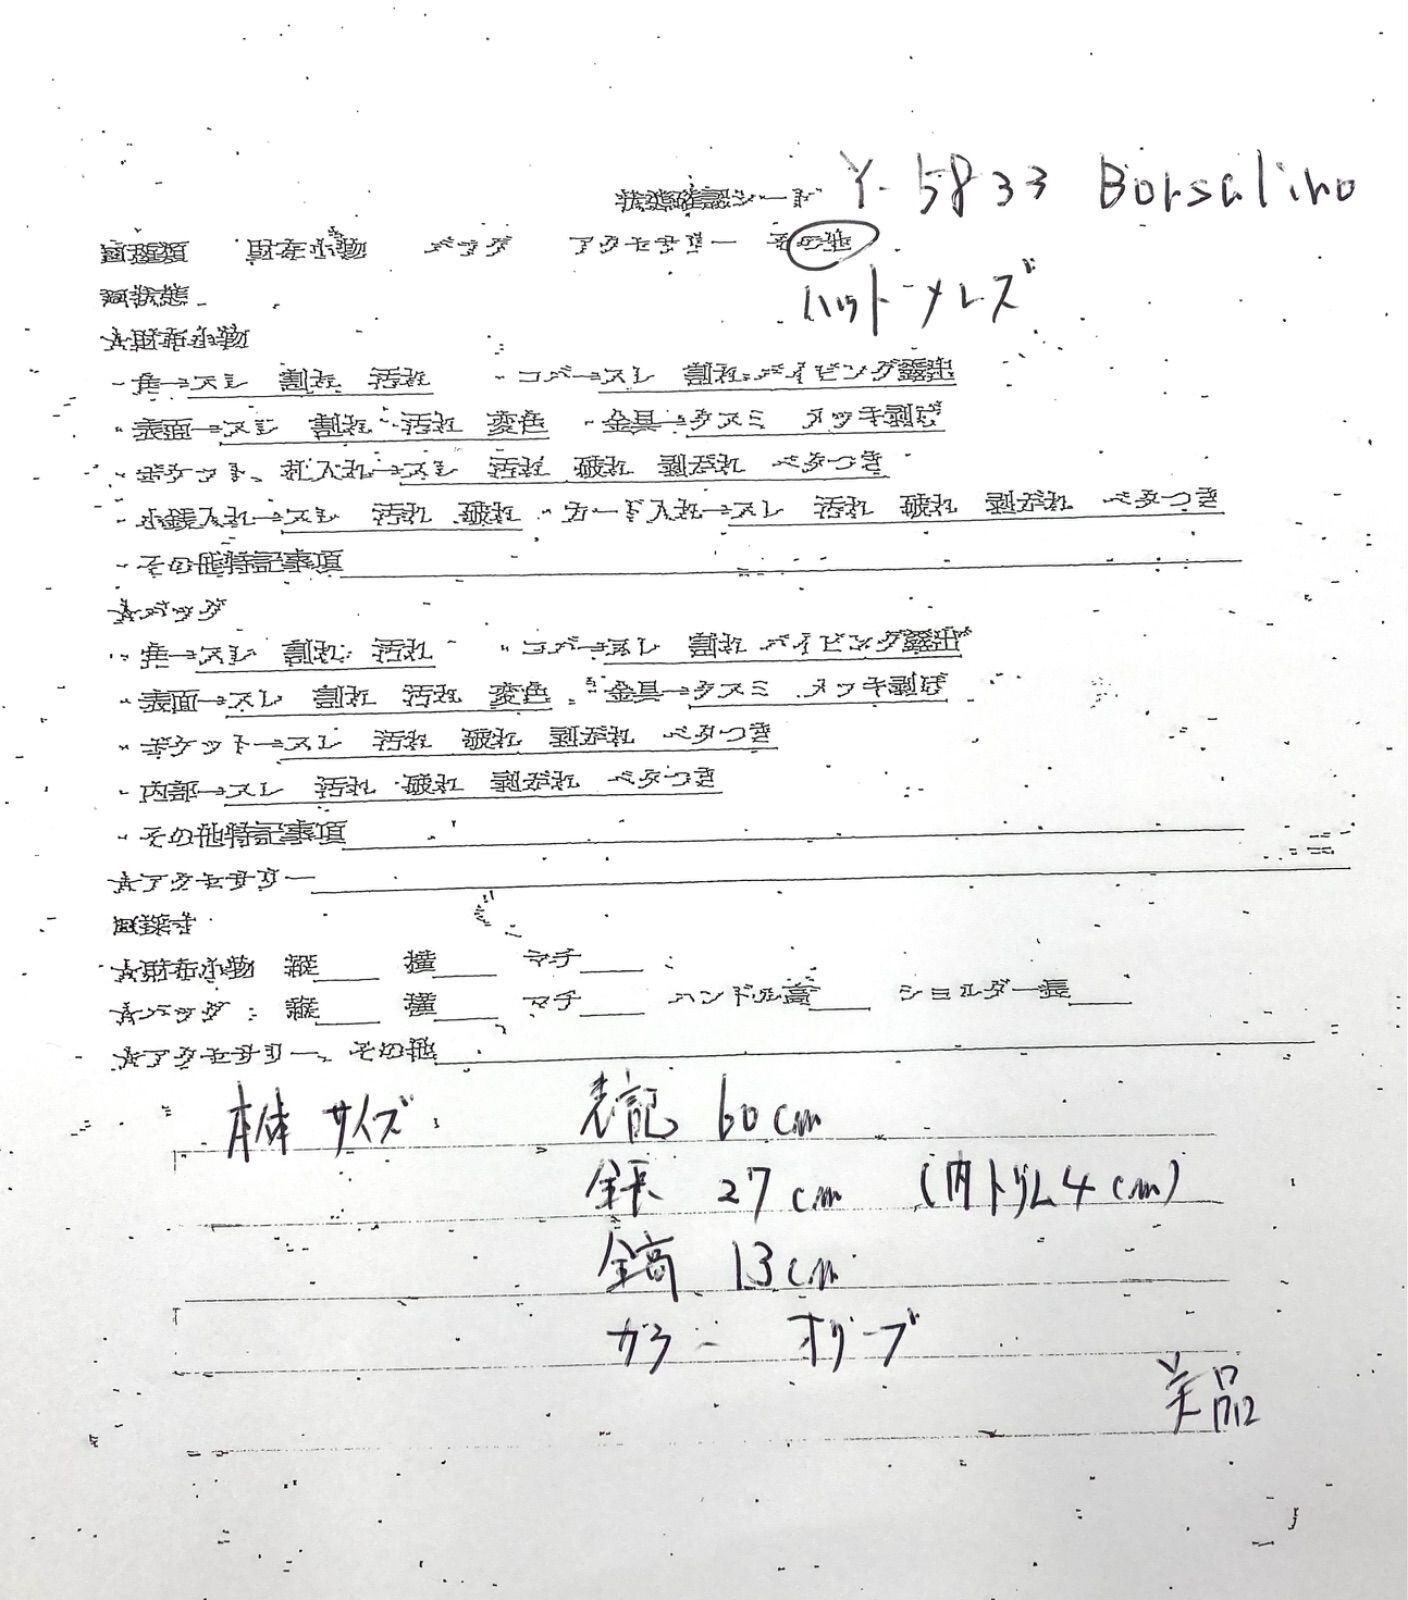 状態確認シート Y-5833 Borsalino
□種類 財布小物 バッグ アクセサリー その他
□状態 ハット メンズ
☆財布小物
・角→スレ 割れ 汚れ ・コバ→スレ 割れ パイピング露出
・表面→スレ 割れ 汚れ 変色 ・金具→クスミ メッキ剥げ
・ポケット、札入れ→スレ 汚れ 破れ 剥がれ ベタつき
・小銭入れ→スレ 汚れ 破れ ・カード入れ→スレ 汚れ 破れ 剥がれ ベタつき
・その他特記事項
☆バッグ
・角→スレ 割れ 汚れ ・コバ→スレ 割れ パイピング露出
・表面→スレ 割れ 汚れ 変色 ・金具→クスミ メッキ剥げ
・ポケット→スレ 汚れ 破れ 剥がれ ベタつき
・内部→スレ 汚れ 破れ 剥がれ ベタつき
・その他特記事項
☆アクセサリー
□採寸
☆財布小物 縦 横 マチ
☆バッグ 縦 横 マチ ハンドル高 ショルダー長
☆アクセサリー、その他
本体サイズ 表記 60cm
27cm (内トリム4cm)
全高 13cm
カラー オリーブ
美品